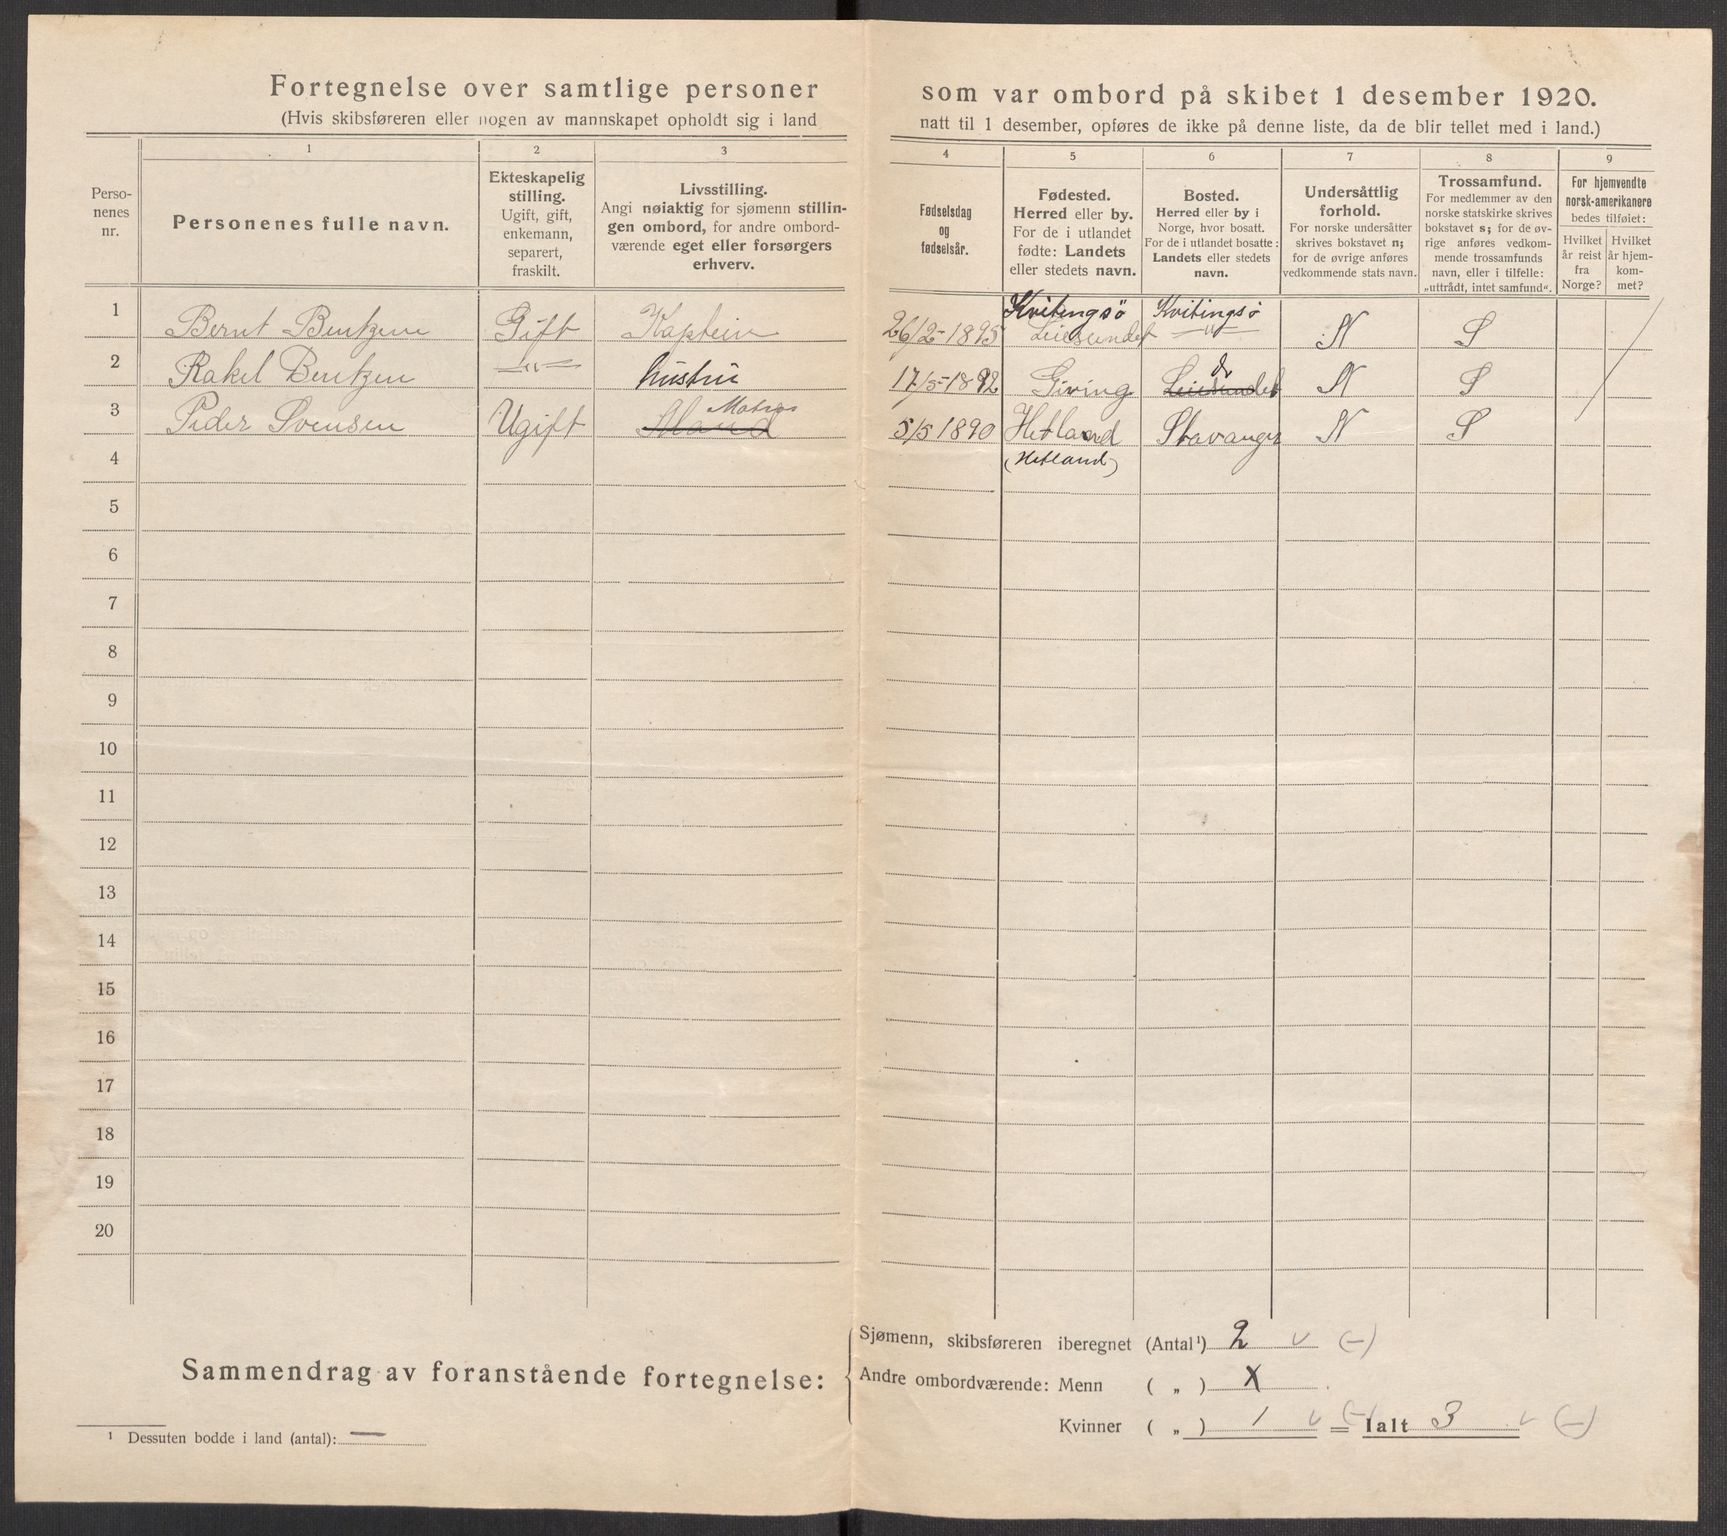 Fortegnelse over samtlige personer som var ombord på skibet 1 desember 1920.
(Hvis skibsføreren eller nogen av mannskapet opholdt sig i land natt til 1 desember, opføres de ikke på denne liste, da de blir tellet med i land.)
1 2 3 4 5 6 7 8 9
Perso-
nenes
nr.
Personenes fulle navn.
Ekteskapelig
stilling.
Ugift, gift,
enkemann,
separert,
fraskilt.
Livsstilling.
Angi nøiaktig for sjømenn stillin-
gen ombord, for andre ombord-
værende eget eller forsørgers
erhverv.
Fødselsdag
og
fødselsår.
Fødested.
Herred eller by.
For de i utlandet
fødte: Landets
eller stedets navn.
Bosted.
Herred eller by i
Norge, hvor bosatt.
For de i utlandet bosatte:
Landets eller stedets
navn.
Undersåttlig
forhold.
For norske undersåtter
skrives bokstavet n;
for de øvrige anføres
vedkommende stats navn.
Trossamfund.
For medlemmer av den
norske statskirke skrives
bokstavet s; for de øv-
rige anføres vedkom-
mende trossamfunds
navn, eller i tilfelle:
„uttrådt, intet samfund“.
For hjemvendte
norsk-amerikanere
bedes tilføiet:
Hvilket
år reist
fra
Norge?
Hvilket
år hjem-
kom-
met?
Kvitingsö Kvitingsö
1 Bernt Bentzen Gift Kaptein 26/2-1895 Leiesundet —"— N S
2 Rakel Bentzen —"— hustru 17/5-1892 Giving Leiesundet do N S
Matros
3 Peder Svensen Ugift Mand 5/5 1890 Hetland Stavanger N S
(Hetland)
4
5
6
7
8
9
10
11
12
13
14
15
16
17
18
19
20
Sammendrag av foranstående fortegnelse:
Sjømenn, skibsføreren iberegnet (Antal¹) 2 v (-)
Andre ombordværende: Menn ( „ ) X
Kvinner ( „ ) 1 v (-) = Ialt 3 v (-)
¹ Dessuten bodde i land (antal): —